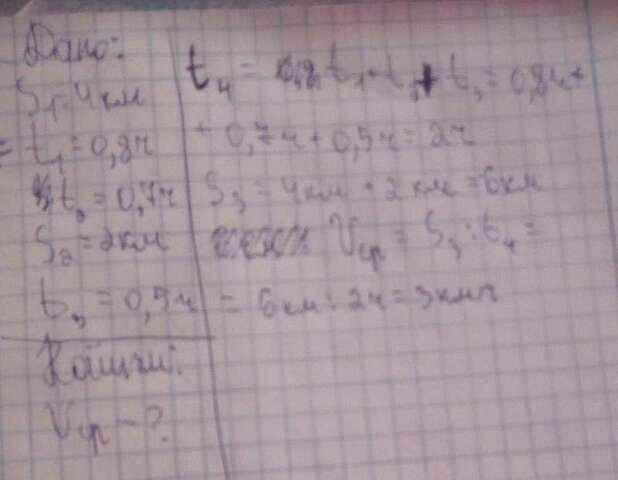 Дано:
S₁=4км
t₁=0,8ч
t₂=0,7ч
S₂=2км
t₃=0,5ч
Vср-?
t₄ = t₁+t₂+t₃=0,8ч+
+0,7ч+0,5ч=2ч
S₃=4км+2км=6км
Vср=S₃:t₄=
=6км:2ч=3км/ч